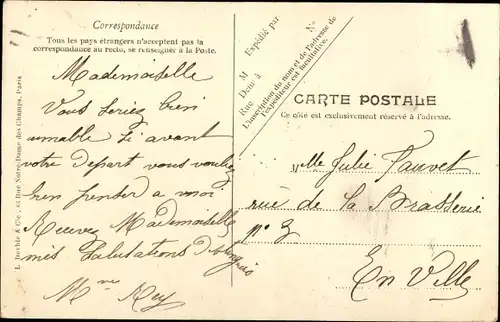 Correspondance
Tous les pays étrangers n'acceptent pas la
correspondance au recto, se renseigner à la Poste.
Mademoiselle
Vous seriez bien
aimable si avant
votre depart vous vouliez
bien penser a moi
Recevez Mademoiselle
mes Salutations
Mme Rey
L. &  Cie., Rue Notre-Dame des Champs, Paris
Expédié par
M
Demt à
Rue
No
L'inscription du nom et de l'adresse de
l'expéditeur est facultative.
CARTE POSTALE
Ce côté est exclusivement réservé à l'adresse.
Mlle Julie Fauvet
rue de la Brasserie
no 3
En Ville